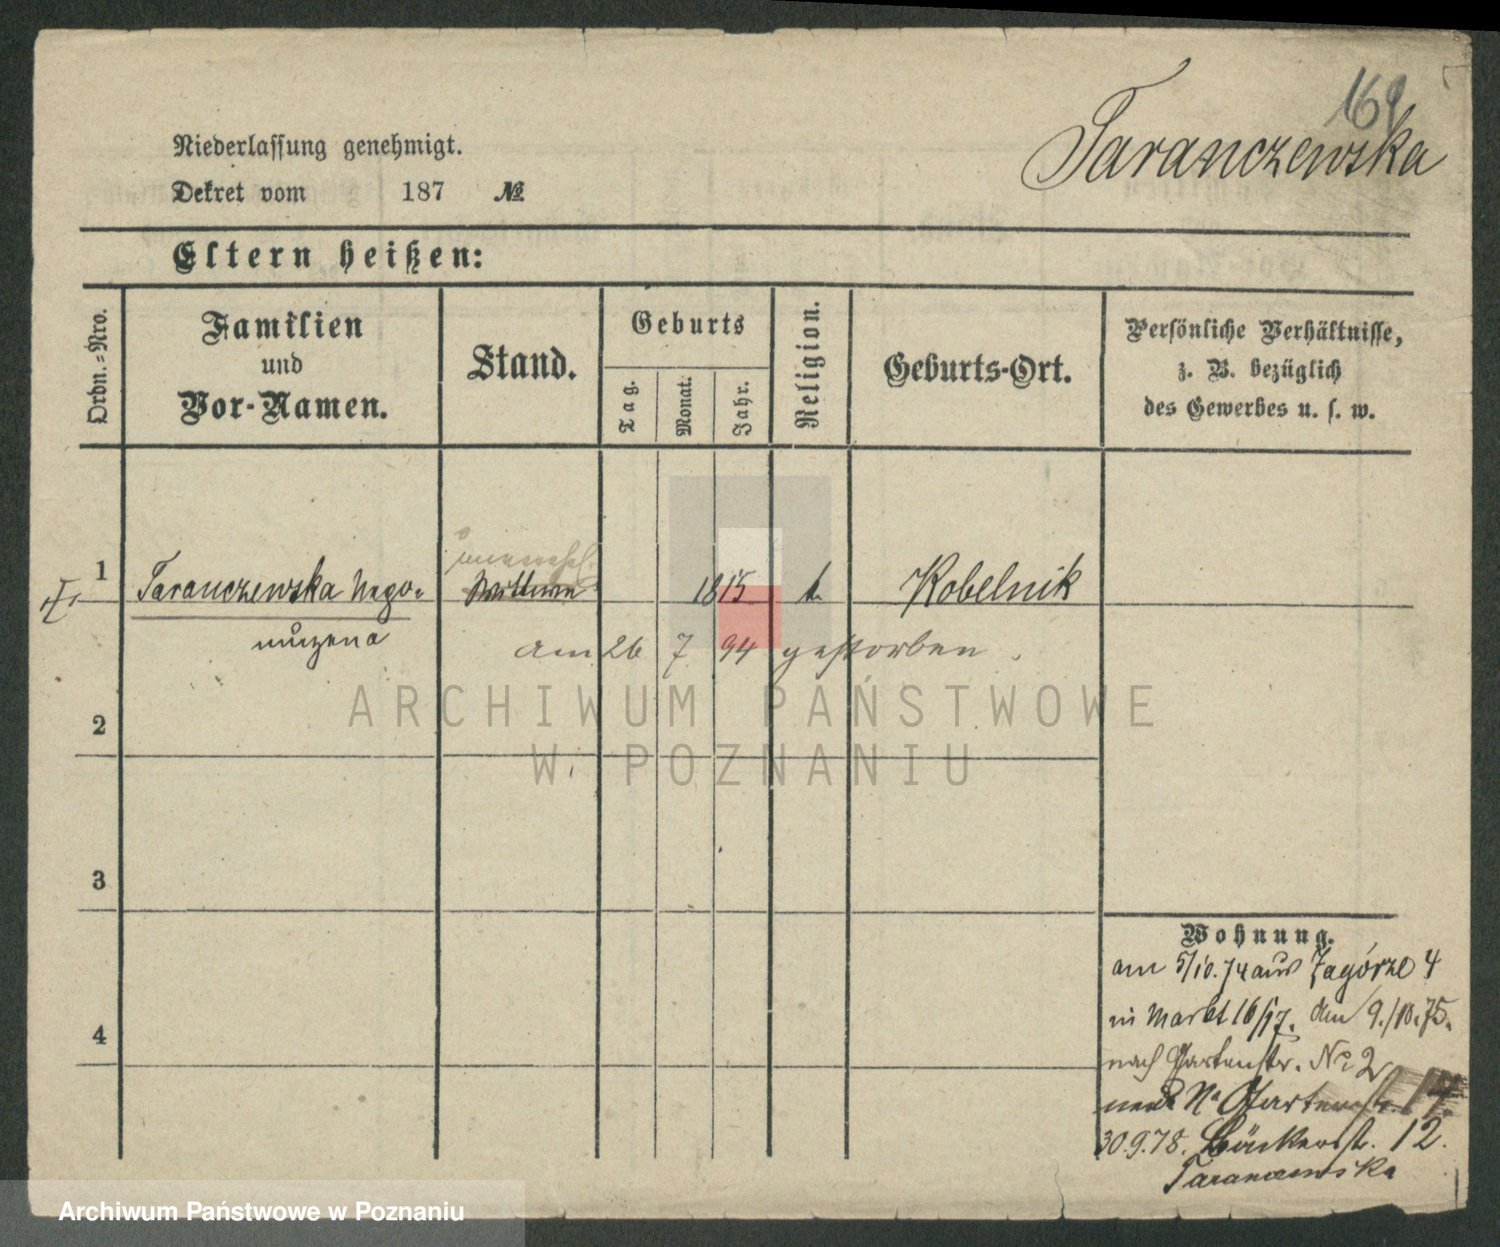 169
Taranczewska
Niederlassung genehmigt.
Dekret vom 187 №
Eltern heißen:
Ordn.=Nro.
Familien
und
Vor-Namen.
Stand.
Geburts
Tag.
Monat.
Jahr.
Religion.
Geburts-Ort.
Persönliche Verhältnisse,
z. B. bezüglich
des Gewerbes u. s. w.
unverehl.
1 Taranczewska Nepo= Wittwe 1815 k. Kobelnik
muzena
am 26 7 94 gestorben.
ARCHIWUM PAŃSTWOWE
W POZNANIU
2
3
4
Wohnung.
am 5/10.74 aus Zagórze 4
in Markt 16/17. Am 9./10.75.
nach Gartenstr. No 2
No Gartenstr. 14.
30.9.78. Bäckerstr. 12.
Taranczewska
Archiwum Państwowe w Poznaniu